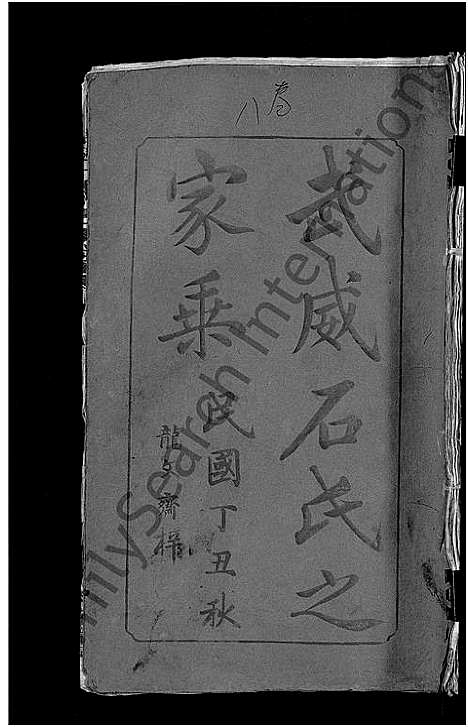 為
八
武威石氏之
家乘
民國丁丑秋
龍文齋梓
FamilySearch International